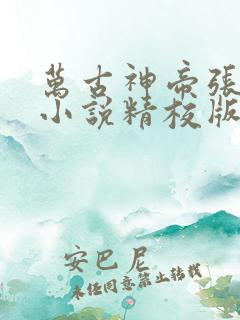 萬古神帝張
小說精校版
安巴尼
未經同意禁止轉載